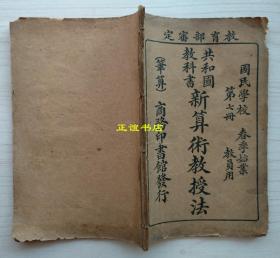 教育部審定
國民學校 春季始業
第七册 教員用
共和國
教科書
新算術教授法
(筆算) 商務印書館發行
正谊书店